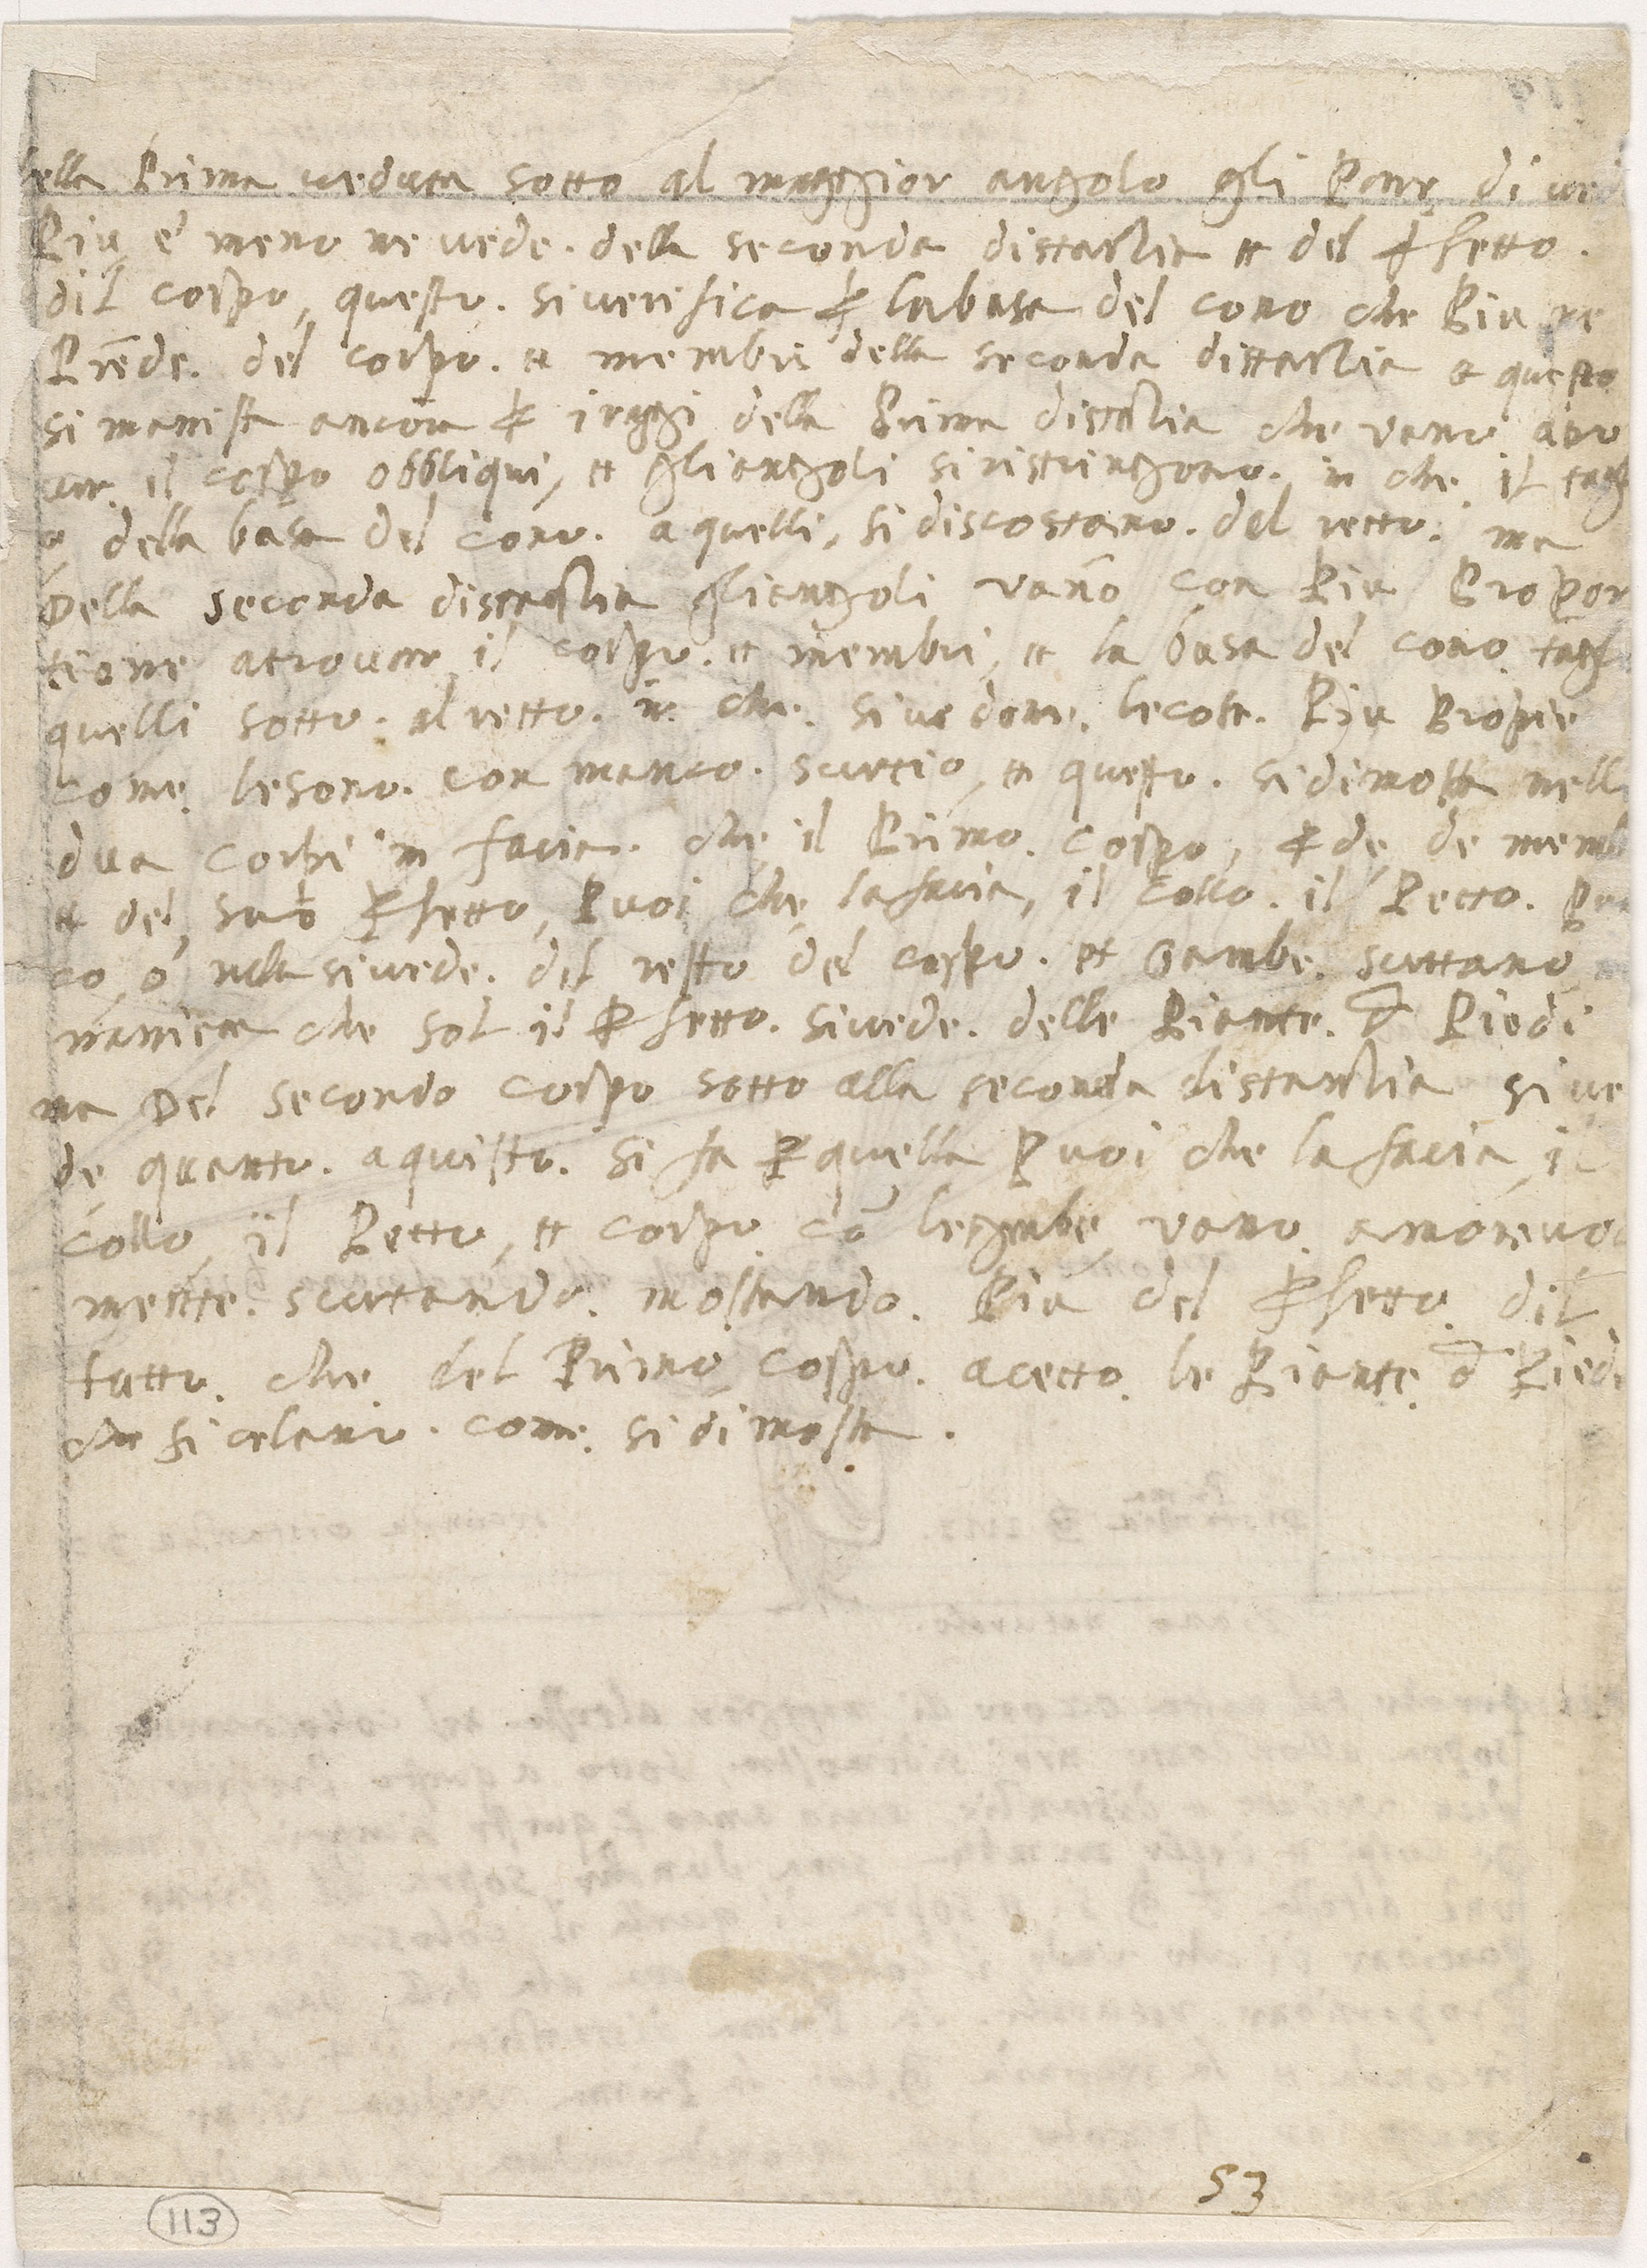 della Prima veduta sotto al maggior angolo gli Par di ved
Piu e meno ne vede. della seconda distantia et del pfetto.
dil corpo, questo. si verifica p la basa del cono che Piu ne
Prẽde. del corpo. et membri della seconda distantia et questo
si manifta ancora p i raggi della Prima distãtia che vano atro
var il corpo obbliqui, et gli angoli si ristringono. in che il tagl
o della basa del cono. a quelli, si discostano. del retto. ma
Della seconda distantia gli angoli vano con Piu Propor
tione a trovar il corpo. et membri, et la basa del cono tagl
quelli sotto. al retto. in che. si vedone. le cose. Piu Propie
come le sono. con manco. scurtio, et questo. si dimostra nelli
dua corpi in facia. che il Primo. corpo, pde de memb
et del, suo pfetto, Puoi che la facia, il collo. il Petto. Po
co, o nulla si vede. dil resto del corpo. et Gambe. scurtano
maniera che sol il pfetto. si vede. delle Piante. d Piedi
ma Del secondo corpo sotto alla seconda distantia si ve
de quanto. aquisto. si fa p quella Puoi che la facia, il
collo, il Petto, et corpo cõ le gambe, vano. amorevol
mente. scurtando. mostrando. Piu del pfetto. dil
tutto. che del Primo corpo. acetto. le Piante d Piedi
che si celano. come. si dimostra.
53
113